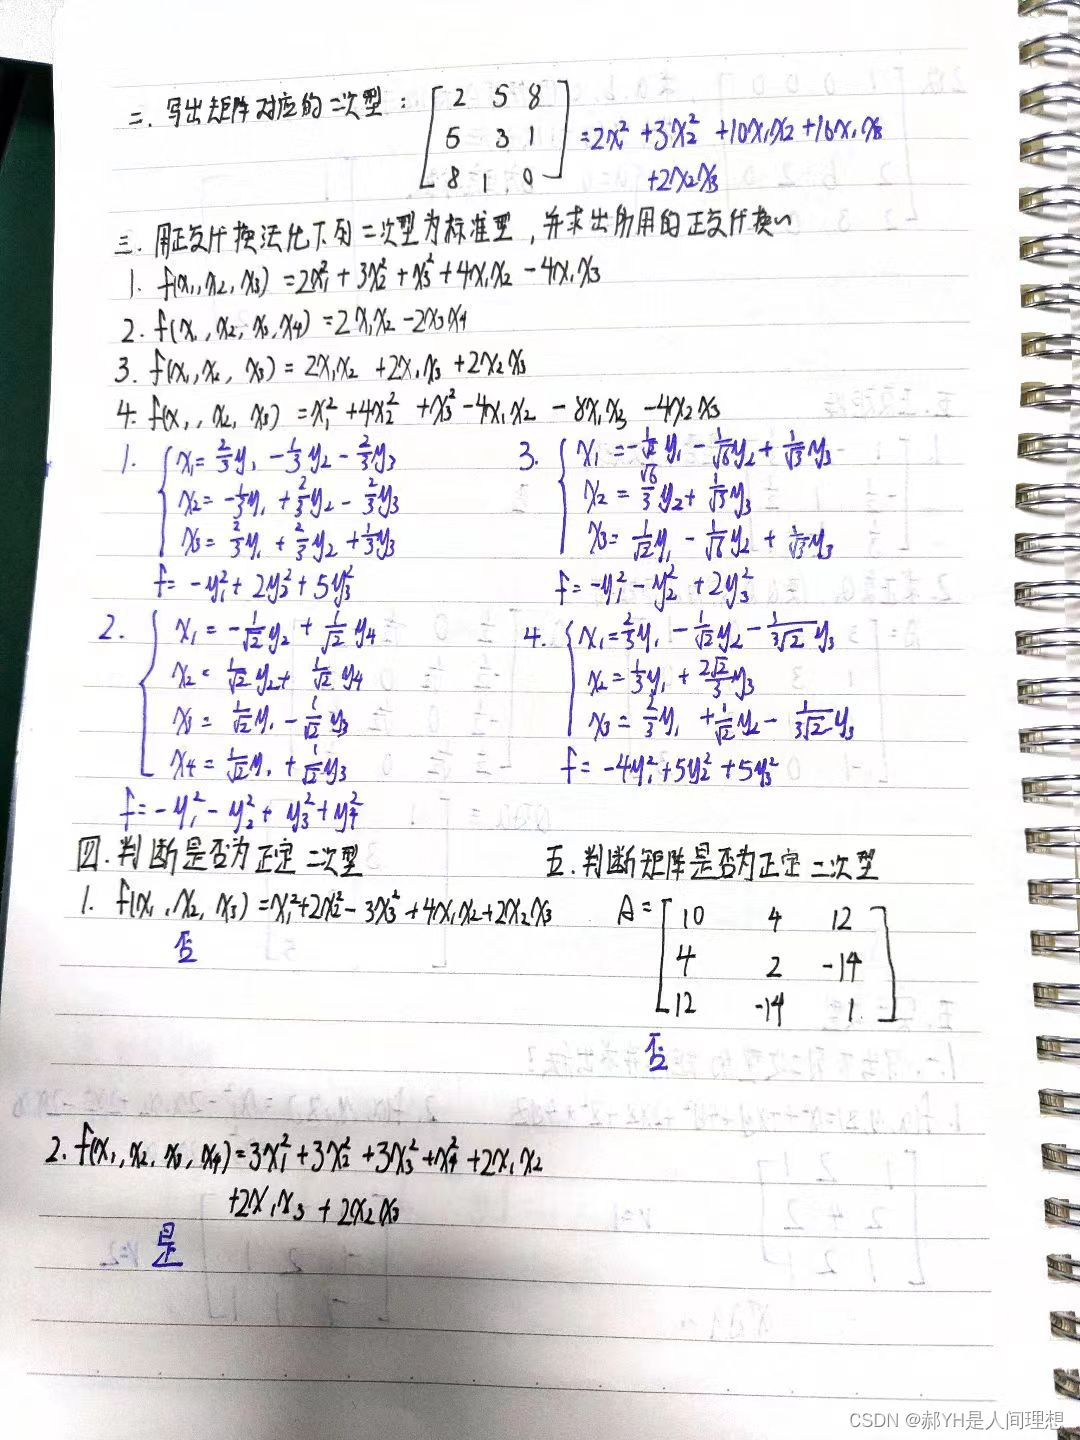 二. 写出矩阵对应的二次型: [2 5 8
5 3 1
8 1 0] = 2x₁² + 3x₂² + 10x₁x₂ + 16x₁x₃
+2x₂x₃
三. 用正交代换法化下列二次型为标准型, 并求出所用的正交代换~
1. f(x₁, x₂, x₃) = 2x₁² + 3x₂² + x₃² + 4x₁x₂ - 4x₁x₃
2. f(x₁, x₂, x₃, x₄) = 2x₁x₂ - 2x₃x₄
3. f(x₁, x₂, x₃) = 2x₁x₂ + 2x₁x₃ + 2x₂x₃
4. f(x₁, x₂, x₃) = x₁² + 4x₂² + x₃² - 4x₁x₂ - 8x₁x₃ - 4x₂x₃
1. { x₁ = 2/3 y₁ - 1/3 y₂ - 2/3 y₃
x₂ = -1/3 y₁ + 2/3 y₂ - 2/3 y₃
x₃ = 2/3 y₁ + 2/3 y₂ + 1/3 y₃
f = -y₁² + 2y₂² + 5y₃²
3. { x₁ = -1/√2 y₁ - 1/√6 y₂ + 1/√3 y₃
x₂ = √6/3 y₂ + 1/√3 y₃
x₃ = 1/√2 y₁ - 1/√6 y₂ + 1/√3 y₃
f = -y₁² - y₂² + 2y₃²
2. { x₁ = -1/√2 y₂ + 1/√2 y₄
x₂ = 1/√2 y₂ + 1/√2 y₄
x₃ = 1/√2 y₁ - 1/√2 y₃
x₄ = 1/√2 y₁ + 1/√2 y₃
f = -y₁² - y₂² + y₃² + y₄²
4. { x₁ = 2/3 y₁ - 1/√2 y₂ - 1/3√2 y₃
x₂ = 1/3 y₁ + 2√2/3 y₃
x₃ = 2/3 y₁ + 1/√2 y₂ - 1/3√2 y₃
f = -4y₁² + 5y₂² + 5y₃²
四. 判断是否为正定二次型
1. f(x₁, x₂, x₃) = x₁² + 2x₂² - 3x₃² + 4x₁x₂ + 2x₂x₃
否
五. 判断矩阵是否为正定二次型
A = [10 4 12
4 2 -14
12 -14 1]
否
2. f(x₁, x₂, x₃, x₄) = 3x₁² + 3x₂² + 3x₃² + x₄² + 2x₁x₂
+2x₁x₃ + 2x₂x₃
是
CSDN @郝YH是人间理想